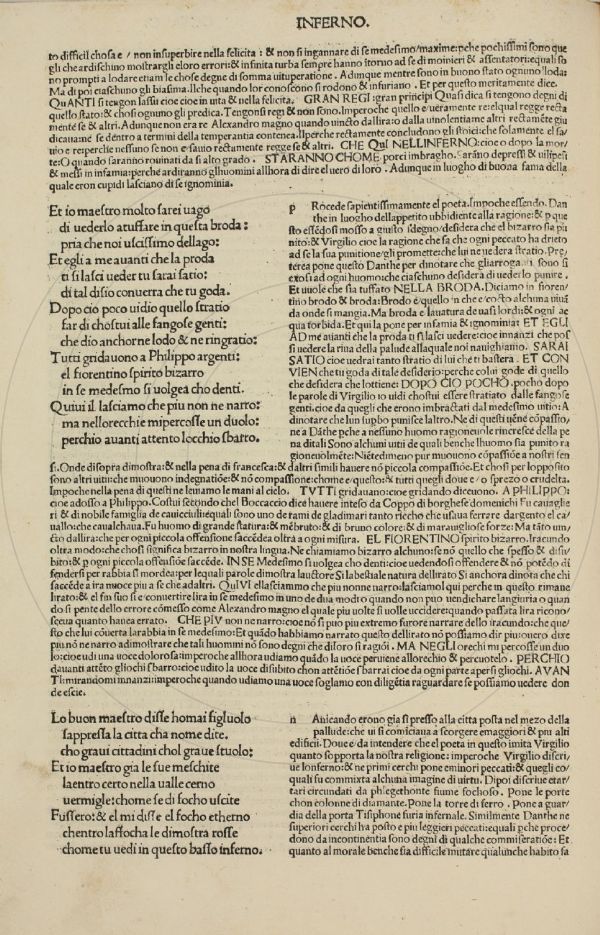 INFERNO.
to difficil chosa e / non insuperbire nella felicita : & non si ingannare di se medesimo/maxime:pche pochissimi sono que
gli che ardischino mostrargli eloro errori:& infinita turba sempre hanno itorno ad se di moinieri & assentatori:equali so
no prompti a lodare etiam le chose degne di somma uituperatione . Adunque mentre sono in buono stato ognuno loda:
Ma di poi ciaschuno gli biasima.Ilche quando lor conoscono si rodono & infuriano . Et per questo meritamente dice.
QuANTI si tengon lassu cioe cioe in uita & nella felicita. GRAN REGI: gran principi Quasi dica si tengono degni di
quello stato: & chosi ognuno gli predica. Tengonsi regi & non sono. Imperoche quello e ueramente re:elqual regge recta
mente se & altri. Adunque non era re Alexandro magno quando uincto dallira:o dalla uinolentia
dicauane se dentro a termini della temperantia contenea. Ilperche rectamente concludono gli stoici:che solamente el sa/
uio e re:perche nessuno se non e sauio rectamente regge se & altri. CHE QuI NELLINFERNO:cioe o dopo la mor/
te:O quando saranno rouinati da si alto grado. STARANNO CHOME porci imbragho. Saranno depressi & uilipesi
& messi in infamia:perche ardiranno glhuomini allhora di dire el uero di loro . Adunque in luogho di buona fama della
quale eron cupidi lasciano di se ignominia.
Et io maestro molto sarei uago
di uederlo atuffare in questa broda :
pria che noi uscissimo dellago:
Et egli a me auanti che la proda
ti si lasci ueder tu sarai satio:
di tal disio conuerra che tu goda.
Dopo cio poco uidio quello stratio
far di chostui alle fangose genti:
che dio anchorne lodo & ne ringratio:
Tutti gridauono a Philippo argenti:
el fiorentino spirito bizarro
in se medesmo si uolgea cho denti.
Quiui il lasciamo che piu non ne narro:
ma nellorecchie mipercosse un duolo:
perchio auanti attento locchio sbarro.
p Rocede sapientissimamente el poeta. Impoche essendo. Dan
the in luogho dellappetito ubbidiente alla ragione:& p que
sto essedo mosso a giusto sdegno/desidera che el bizarro sia pu
nito:& Virgilio cioe la ragione che sa che ogni peccato ha drieto
ad se la sua punitione/gli promette:che lui ne uedera stratio. Pre/
terea pone questo Danthe per dinotare che gliarroganti sono si
exosi ad ogni huomo/che ciaschuno desidera di uederlo punire.
Et uuole che sia tuffato NELLA BRODA. Diciamo in fioren/
tino brodo & broda: Brodo e quello in che e cocto alchuna uiua
da onde si mangia. Ma broda e lauatura de uasi lordi:& ogni ac
qua torbida. Et qui la pone per infamia & ignominia: ET EGLI
AD me auanti che la proda ti si lasci uedere:cioe innanzi che pos
si uedere la riua della palude allaquale noi nauighiamo. SARAI
SATIO cioe uedrai tanto stratio di lui che ti bastera. ET CON
VIEN che tu goda di tale desiderio:perche colui gode di quello
che desidera che lottiene: DOPO CIO POCHO. pocho dopo
le parole di Virgilio io uidi chostui essere stratiato dalle fangose
genti.cioe da quegli che erono imbractati dal medesimo uitio: A
dinotare che lun supbo punisce laltro.
pena ditali:Sono alchuni uitii de quali benche lhuomo sia punito ra
gioneuolmente:Nientedimeno pur muouono copassione a nostri sen
si. Onde disopra dimostra:& nella pena di francesca:& daltri simili hauere no piccola compassione. Et chosi per lopposito
sono altri uitii:che muouono indegnatione:& no compassione:chome e questo:& tutti quegli doue e / o sprezo o crudelta.
Impoche nella pena di questi ne leuiamo le mani al cielo. TVTTI gridauano:cioe gridando diceuono. A PHILIPPO:
cioe adosso a Philippo. Costui secondo chel Boccaccio dice hauere inteso da Coppo di borghese domenichi Fu cauaglie
ri & di nobile famiglia de cauicciuli
uallo:che caualchaua. Fu huomo di grande statura:& mebruto:& di bruno colore:& di marauigliose forze: Ma tato uin/
cto dallira:che per ogni piccola offensione saccedea oltra a ogni misura. EL FIORENTINO spirito bizarro. Iracundo
oltra modo:che chosi significa bizarro in nostra lingua. Ne chiamiamo bizarro alchuno:se no quello che spesso & di su/
bito:& p ogni piccola offensione saccede. IN SE Medesimo si uolgea cho denti:cioe uedendosi offendere & no potedo di
fendersi per rabbia si mordea:per lequali parole dimostra lauctore Si la bestiale natura dellirato Si anchora dinota che chi
saccede a ira nuoce piu a se che adaltri. QuIVI ellasciammo che piu nonne narro:lasciamol qui perche in questo rimane
lirato:& el fin suo si e conuertire lira in se medesimo in uno de dua modi:o quando non puo uendichare langiuria o quan
do si pente dello errore comesso come Alexandro magno el quale piu uolte si uolle uccidere:quando passata lira ricono/
sceua quanto hauea errato. CHE PIV non ne narro:cioe no si puo piu extremo furore narrare dello iracundo:che que/
sto che lui couerta larabbia in se medesimo:Et quado habbiamo narrato questo dellirato no possiamo dir piu:ouero dixe
piu no ne narro adimostrare che tali huomini no sono degni che di loro si ragioni. MA NEGLI orechi mi percosse un duo
lo:cioe udi una uoce dolorosa:imperoche allhora udiamo quado la uoce peruiene allorechio & percuotelo. PERCHIO
dauanti atteto gliochi sbarro:cioe udito la uoce disubito chon attetione sbarrai cioe da ogni parte apersi gliochi. AVAN
TI:mirandomi innanzi:imperoche quando udiamo una uoce sogliamo con diligetia raguardare se possiamo uedere don
de escie.
Lo buon maestro disse homai figluolo
sappressa la citta cha nome dite.
cho graui cittadini chol graue stuolo:
Et io maestro gia le sue meschite
laentro certo nella ualle cerno
uermigle:chome se di focho uscite
Fussero:& el mi disse el focho etherno
chentro laffocha le dimostra rosse
chome tu uedi in questo basso inferno.
n Auicando erono gia si presso alla citta posta nel mezo della
pallude:che ui si cominciaua a scorgere emaggiori & piu alti
edificii. Doue e da intendere che el poeta in questo imita Virgilio
quanto sopporta la nostra religione: imperoche Virgilio discri/
ue lonferno:& ne primi cerchi pone eminori peccati:& quegli co/
quali fu commixta alchuna imagine di uirtu. Dipoi discriue etar/
tari circundati da phlegethonte fiume fochoso . Pone le porte
chon colonne di diamante. Pone la torre di ferro . Pone a guar/
dia della porta Tisiphone furia infernale. Similmente Danthe ne
superiori cerchi ha posto e piu leggieri peccati:equali pche proce/
dono da incontinentia sono degni di qualche commiseratioe: Et
quanto al morale benche sia difficile mutare qualunche habito fa